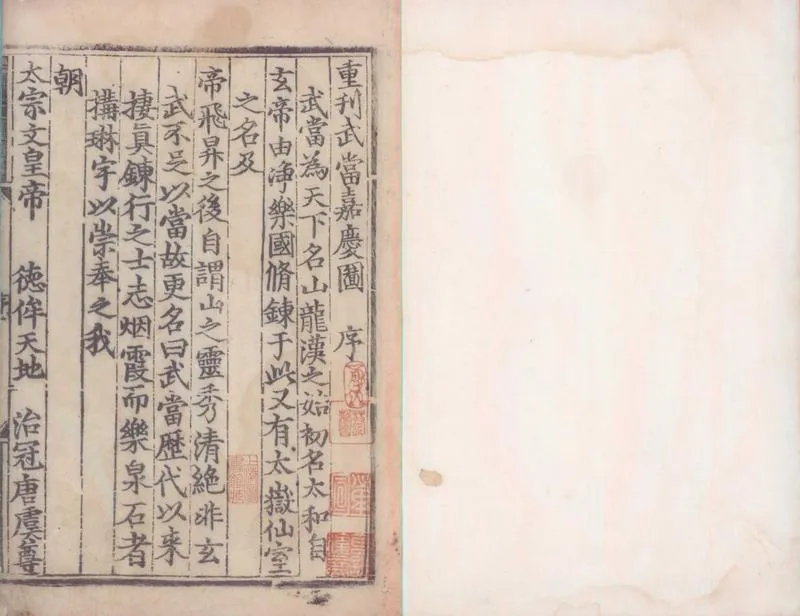 重刊武當嘉慶圖　序
武當為天下名山龍漢之始初名太和自
玄帝由淨樂國脩鍊于此又有太嶽仙室
之名及
帝飛昇之後自謂山之靈秀清絕非玄
武不足以當故更名曰武當歷代以來
棲真鍊行之士志烟霞而樂泉石者
搆琳宇以崇奉之我
朝
太宗文皇帝　德侔天地　治冠唐虞尊